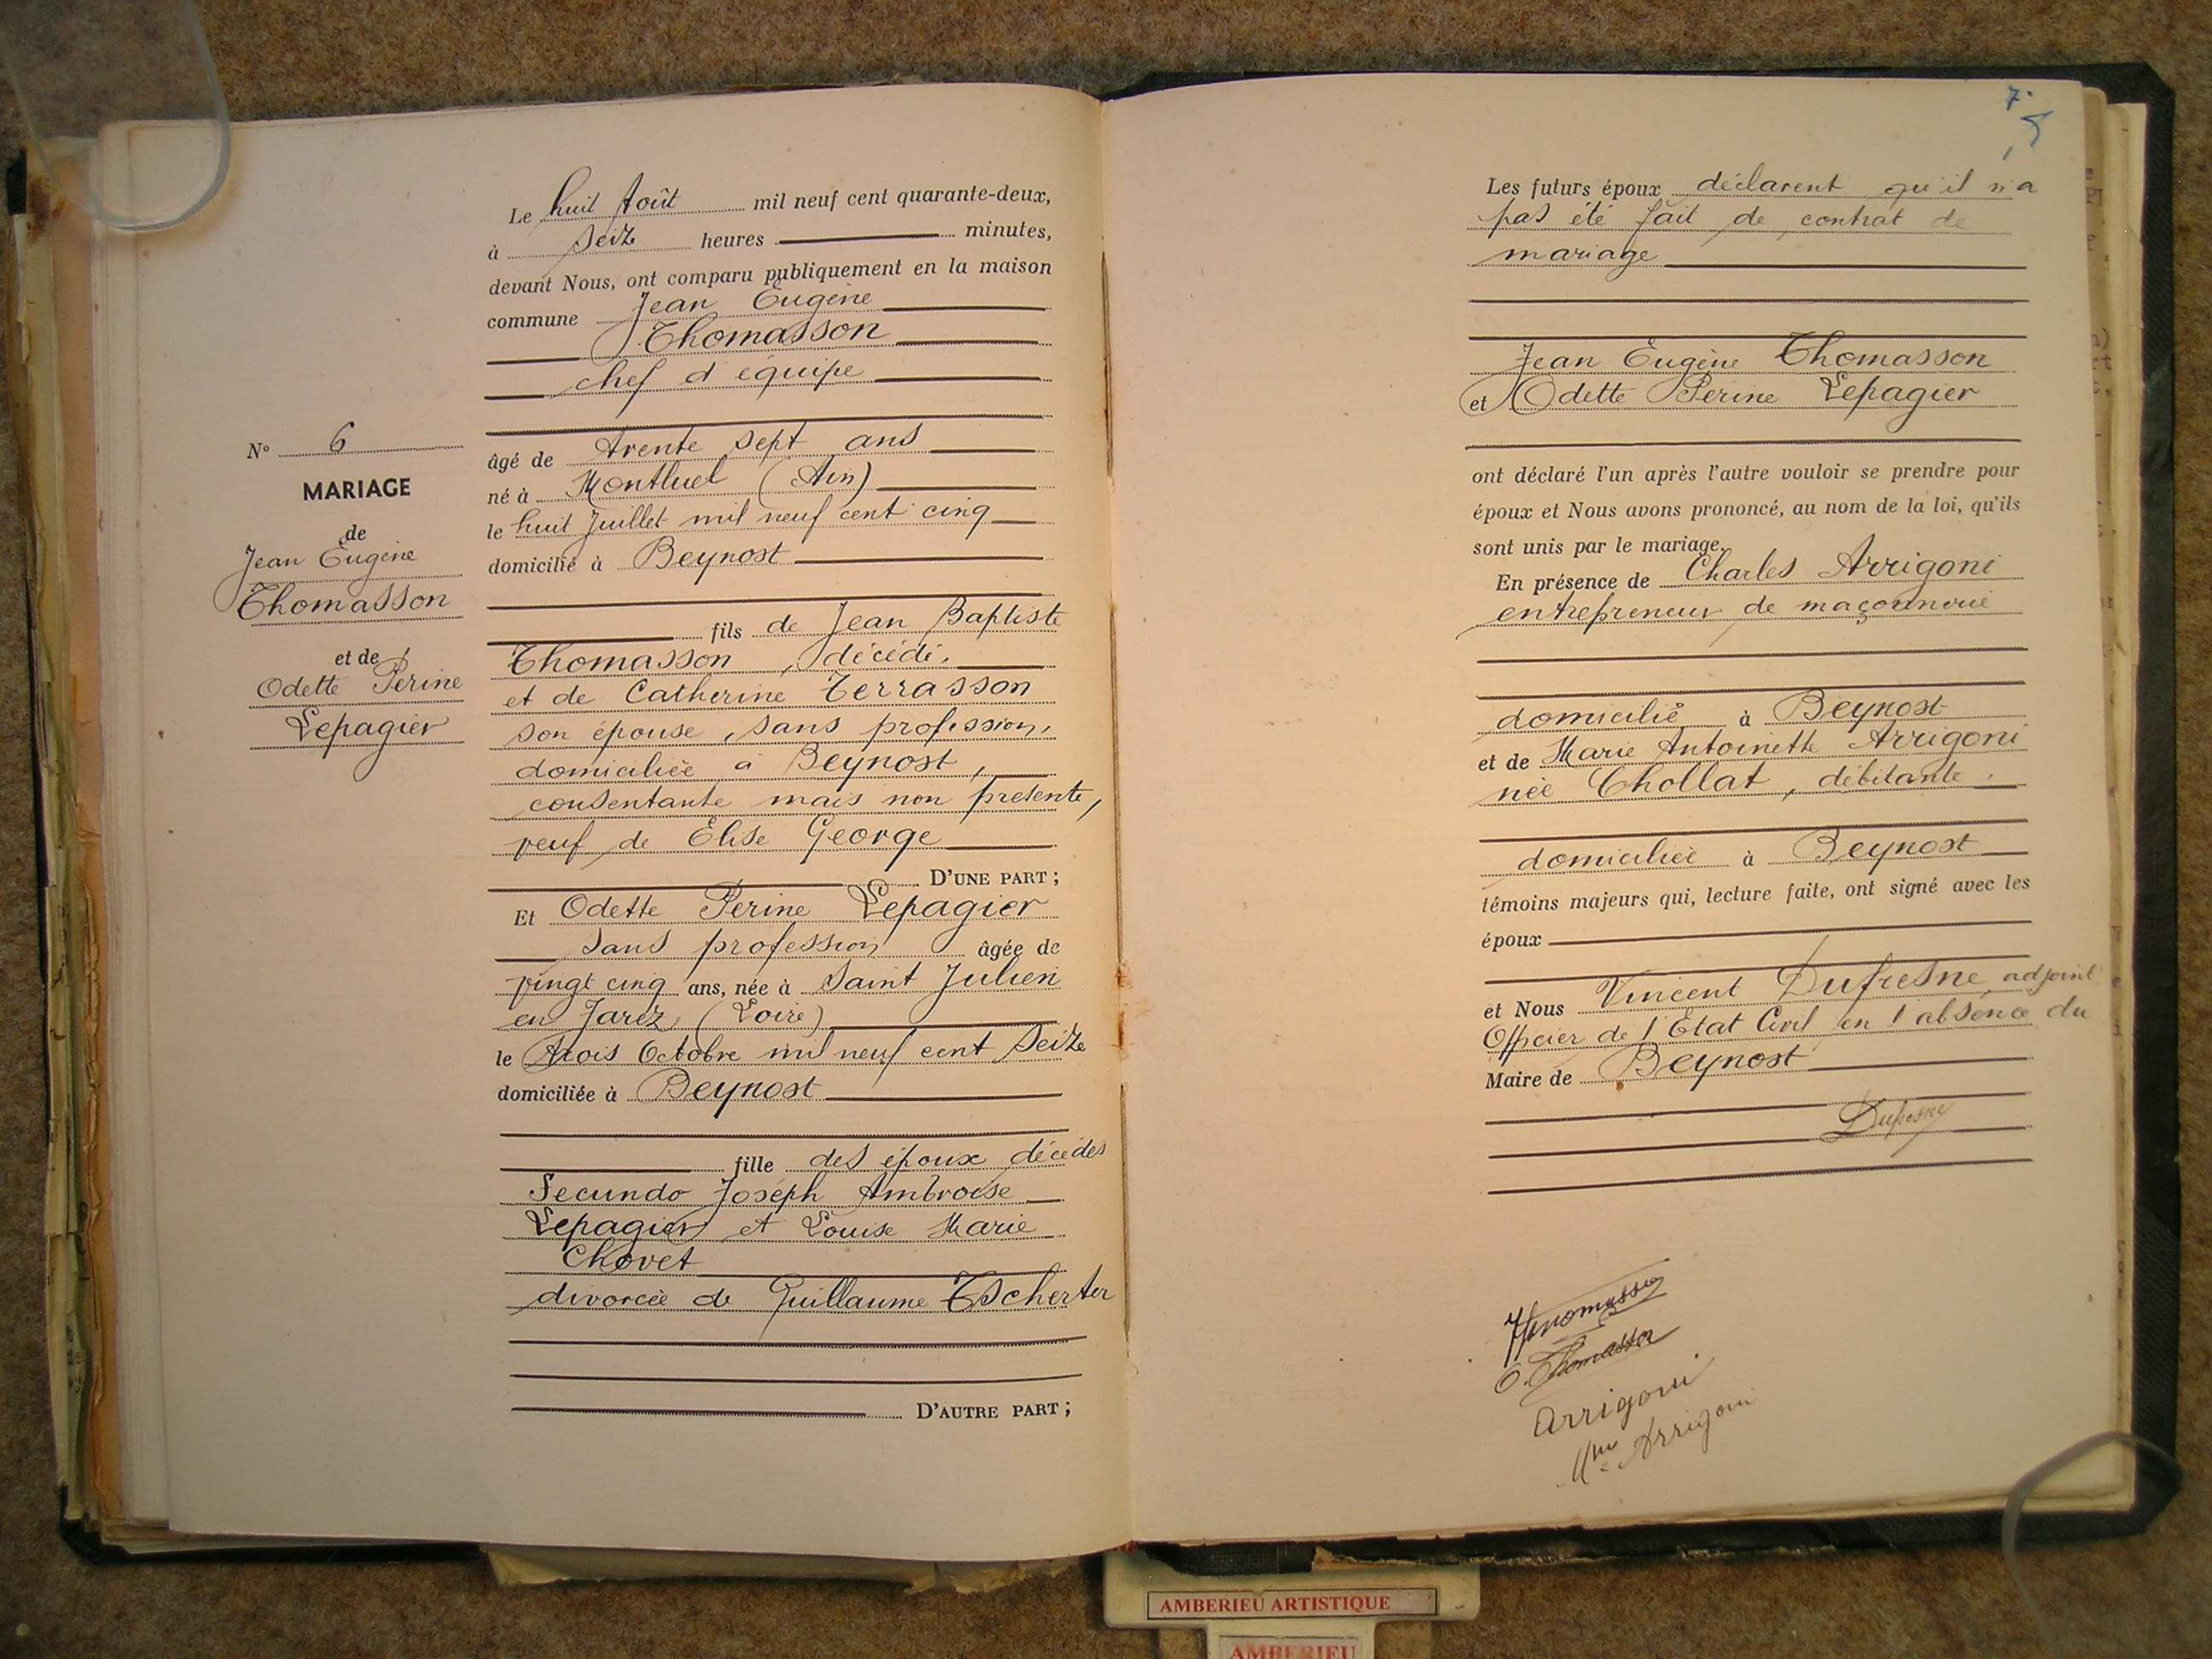 N° 6
MARIAGE
de
Jean Eugène
Thomasson
et de
Odette Perine
Lepagier
Le huit Août mil neuf cent quarante-deux,
à seize heures minutes,
devant Nous, ont comparu publiquement en la maison
commune Jean Eugène
Thomasson
chef d'équipe
âgé de trente sept ans
né à Montluel (Ain)
le huit Juillet mil neuf cent cinq
domicilié à Beynost
fils de Jean Baptiste
Thomasson, décédé,
et de Catherine Terrasson
son épouse, sans profession,
domiciliée à Beynost,
consentante mais non présente,
veuf de Elise George
D'UNE PART ;
Et Odette Perine Lepagier
sans profession âgée de
vingt cinq ans, née à Saint Julien
en Jarez (Loire)
le trois Octobre mil neuf cent seize
domiciliée à Beynost
fille des époux décédés
Secundo Joseph Ambroise
Lepagier et Louise Marie
Chovet
divorcée de Guillaume Tscherter
D'AUTRE PART ;
7.
Les futurs époux déclarent qu'il n'a
pas été fait de contrat de
mariage
Jean Eugène Thomasson
et Odette Perine Lepagier
ont déclaré l'un après l'autre vouloir se prendre pour
époux et Nous avons prononcé, au nom de la loi, qu'ils
sont unis par le mariage.
En présence de Charles Arrigoni
entrepreneur de maçonnerie
domicilié à Beynost
et de Marie Antoinette Arrigoni
née Chollat, débitante,
domiciliée à Beynost
témoins majeurs qui, lecture faite, ont signé avec les
époux
et Nous Vincent Dufresne, adjoint
Officier de l'Etat Civil en l'absence du
Maire de Beynost
Dufresne
Thomasson
O. Thomasson
Arrigoni
Mme Arrigoni
AMBERIEU ARTISTIQUE
AMBERIEU